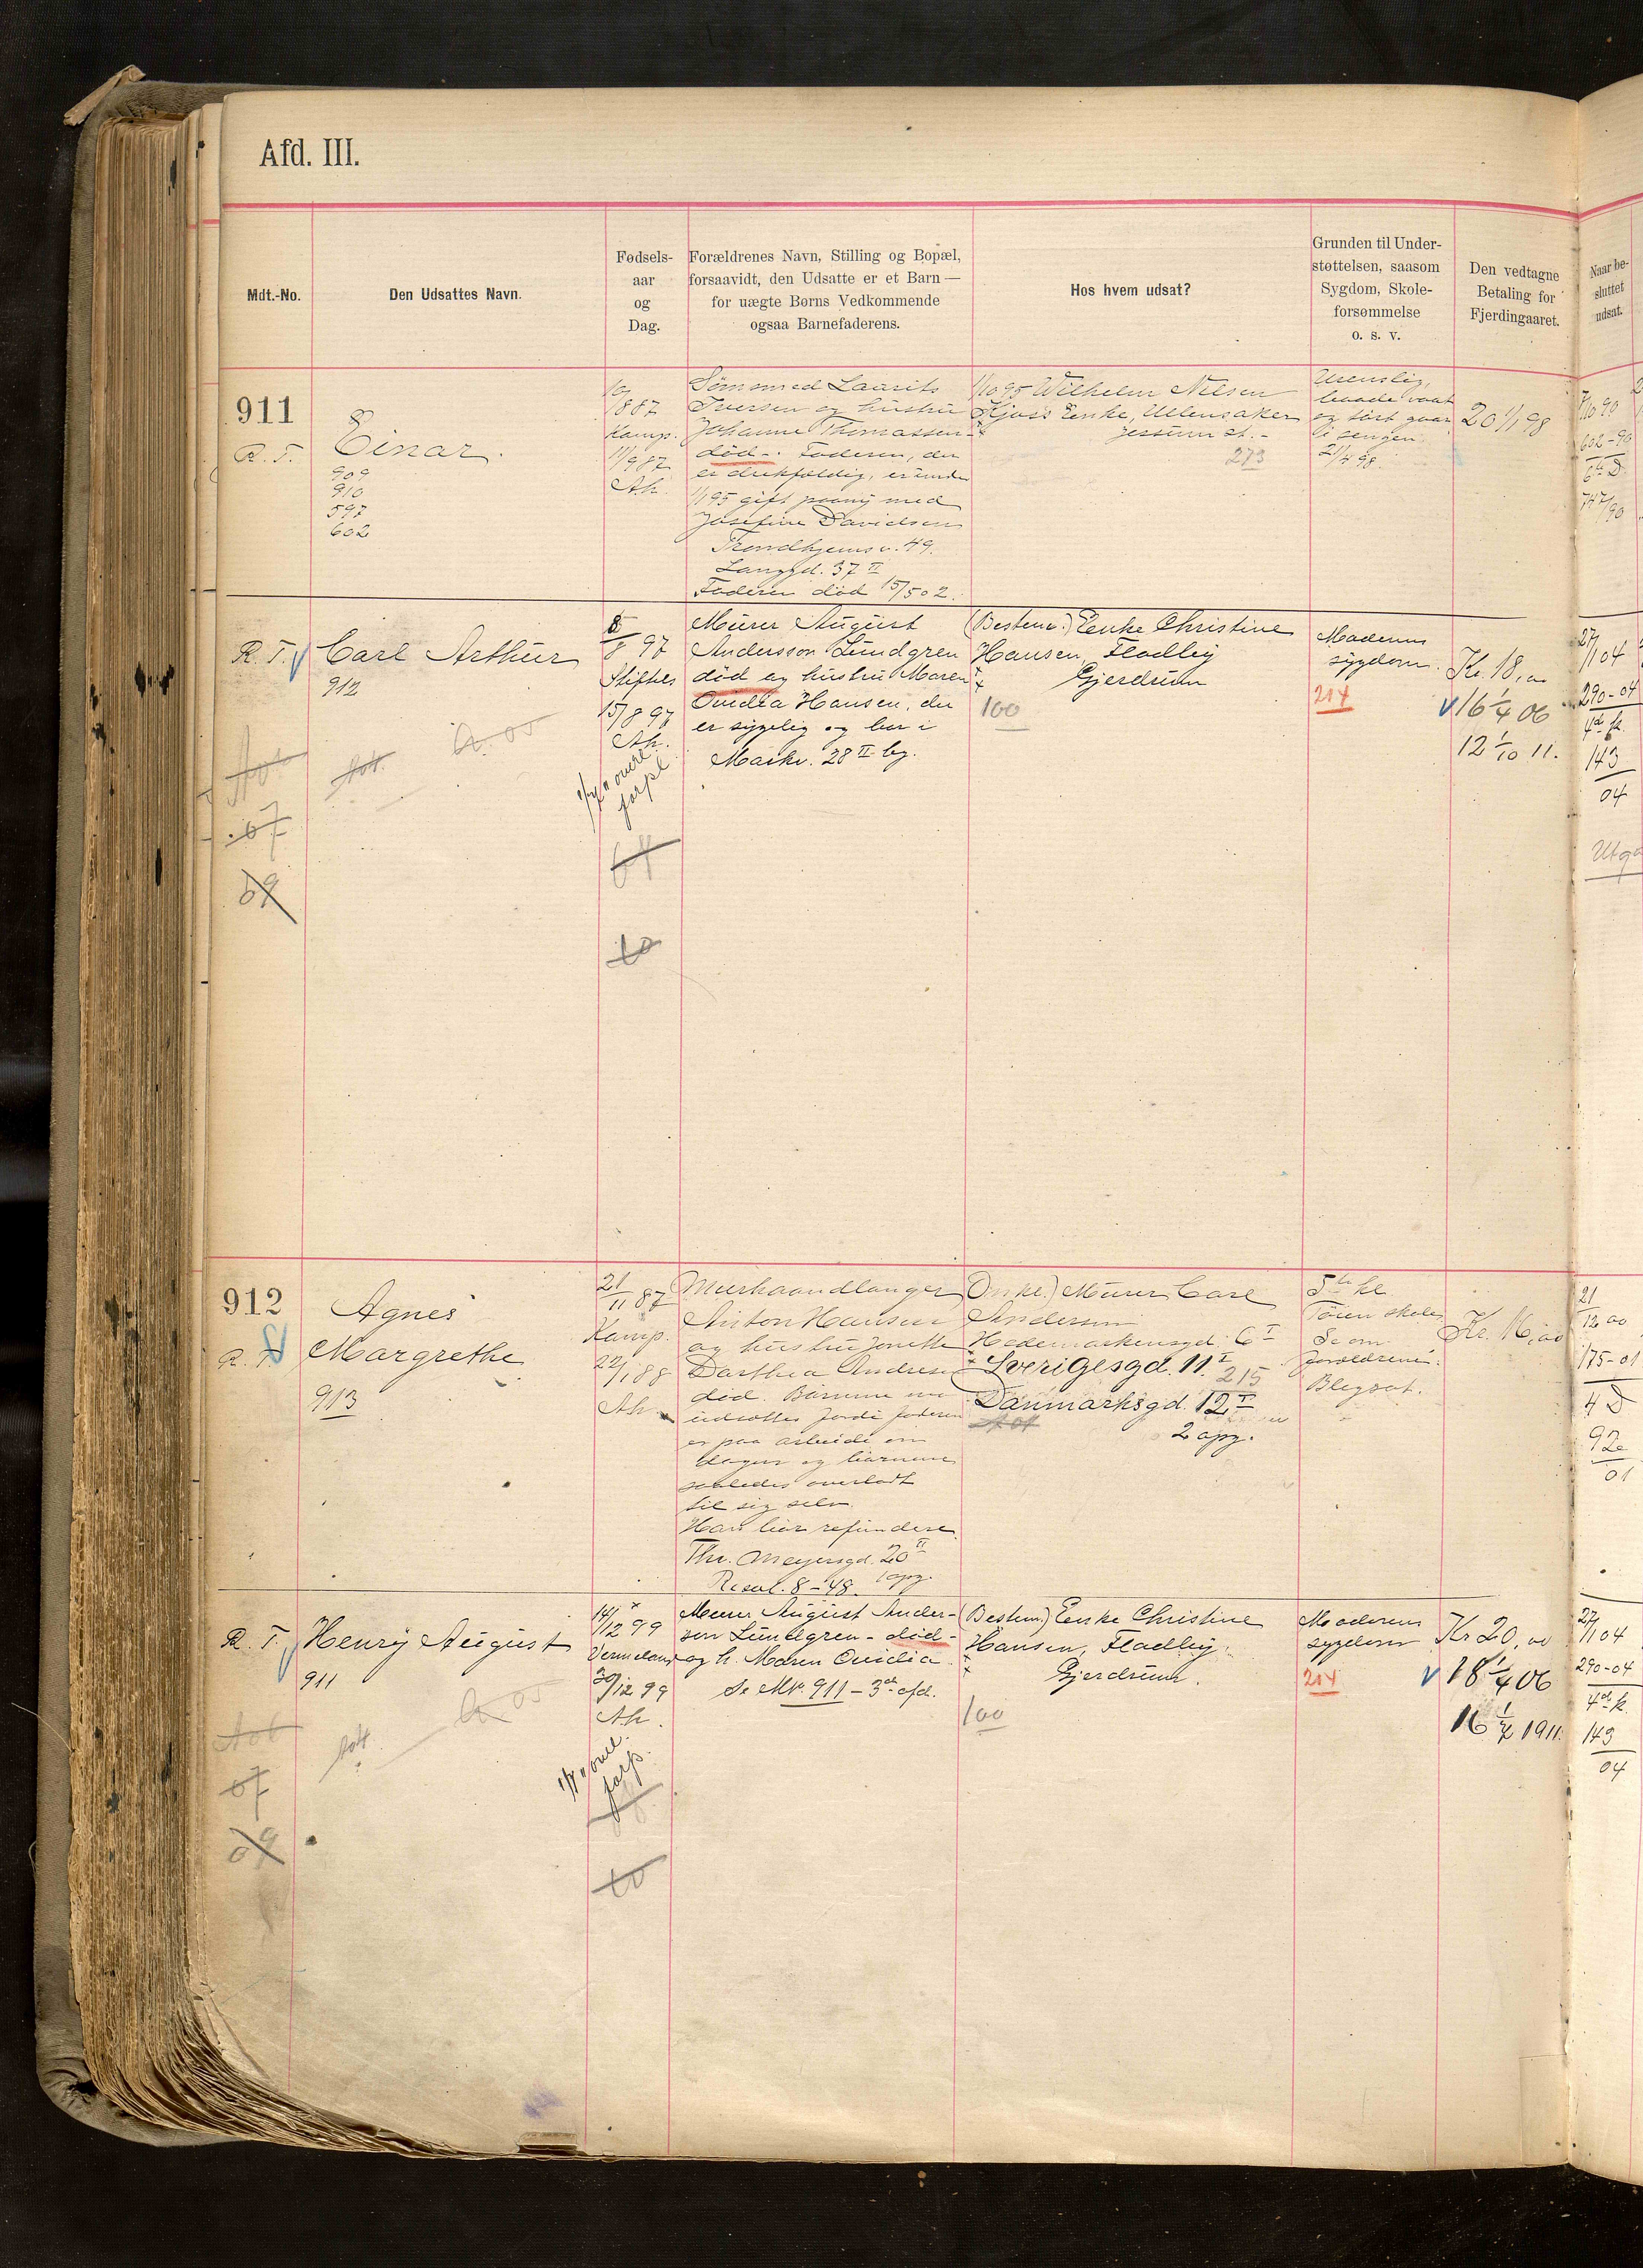 Afd. III.
Mdt.-No.
Den Udsattes Navn.
Fødsels-
aar
og
Dag.
Forældrenes Navn, Stilling og Bopæl,
forsaavidt, den Udsatte er et Barn —
for uægte Børns Vedkommende
ogsaa Barnefaderens.
Hos hvem udsat?
Grunden til Under-
støttelsen, saasom
Sygdom, Skole-
forsømmelse
o. s. v.
Den vedtagne
Betaling for
Fjerdingaaret.
Naar be-
sluttet
udsat.
911
R. T.
Einar.
909
910
597
602
10/
1887
Kamp.
11/9 87
Ak.
Sømand Laurits
Iversen og hustru
Johanne Thomassen
død. Faderen, der
er drikfældig, er under
1/1 95 gift paany med
Josefine Davidsen
Trondhjemsv. 49.
Langgd. 37 II
Faderen død 15/5 02.
1/10 95 Wilhelm Nilsen
Kjos's Enke, Ullensaker
Jessum st.
273
Urenslig,
baade vaat
og tørt gaar
i sengen.
21/4 98.
20 1/1 98
7/10 90
602-90
6te D
747/90
R. T. Carl Arthur
912
8/8 97
Stiftels
15/8 97
Ak.
overl.
forpl.
Murer August
Andersson Lundgren
død og hustru Maren
Ovidia Hansen, der
er sygelig og bor i
Markv. 28 II bg.
(Bestemo.) Enke Christine
Hansen, Fladby
Gjerdrum
100
Moderens
sygdom.
214
Kr. 18,00
16 1/4 06
12 1/10 11.
27/11 04
290-04
4de k.
143
04
07
09
10
912
R. T.
Agnes
Margrethe
913
21/11 87
Kamp.
22/1 88
Ak.
Murhaandlanger
Anton Hansen
og hustru Jonette
Dorthea Andresen
død. Børnene
udsættes fordi faderen
er paa arbeide om
dagen og børnene
saaledes overladt
til sig selv.
Han bør refundere.
Thv. Meyersgd. 20 II
1 opg.
Resol. 8-48.
(Onkel) Murer Carl
Andersen
Hedemarkensgd. 6 I
Sverigesgd. 11 I
215
Danmarksgd. 12 I
2 opg.
5te kl.
Tøien skole
Se om
forældrene.
Blegsot.
Kr. 16,00
21
12 00
175-01
4 D
92
01
R. T. Henry August
911
14/12 99
Vermeland
30/12 99
Ak.
overl.
forp.
Murer August Ander-
son Lundgren - død -
og h. Maren Ovidia
Se Mt. 911 - 3de afd.
(Bestem) Enke Christine
Hansen, Fladby
Gjerdrum.
100
Moderens
sygdom
214
Kr 20,00
18 1/4 06
16 1/7 1911.
27/11 04
290-04
4de k.
143
04
07
09
10